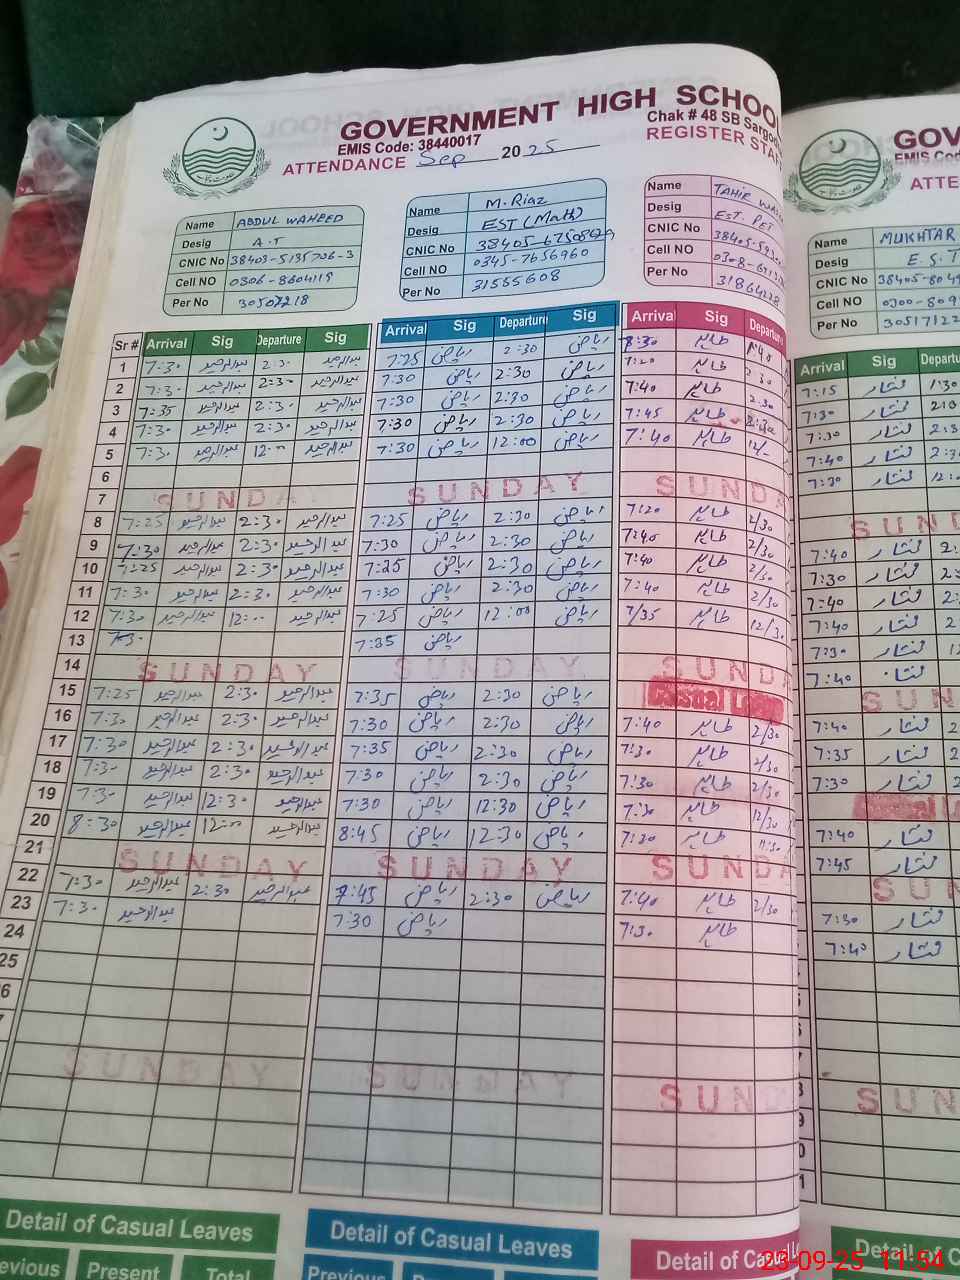 GOVERNMENT HIGH SCHOO
EMIS Code: 38440017
Chak # 48 SB Sargod
ATTENDANCE Sep 2025 REGISTER STAF
Name ABDUL WAHEED
Desig A.T
CNIC No 38403-5135706-3
Cell NO 0306-8604119
Per No
Name M. Riaz
Desig EST (Math)
CNIC No
Cell NO 0345-7656960
Per No 31565608
Name TAHIR
Desig EST. PET
CNIC No
Cell NO
Per No
GOV
EMIS Cod
ATTE
Name MUKHTAR
Desig E.S.T
CNIC No
Cell NO
Per No 3051712
Sr # Arrival Sig Departure Sig Arrival Sig Departure Sig Arrival Sig Departure Arrival Sig Departu
1 7:30 عبدالرحید 2:30 عبدالرحید 7:25 ریاض 2:30 ریاض 8:30 طاہر 7:15
2 7:30 عبدالرحید 2:30 عبدالرحید 7:30 ریاض 2:30 ریاض 7:20 طاہر 2:30 7:30
3 7:35 عبدالرحید 2:30 عبدالرحید 7:30 ریاض 2:30 ریاض 7:40 طاہر 2:30 7:30
4 7:30 عبدالرحید 2:30 عبدالرحید 7:30 ریاض 2:30 ریاض 7:45 طاہر 7:40
5 7:30 عبدالرحید 12:00 عبدالرحید 7:30 ریاض 12:00 ریاض 7:40 طاہر 12/- 7:30
6
7 SUNDAY SUNDAY SUNDA SUN
8 7:25 عبدالرحید 2:30 عبدالرحید 7:25 ریاض 2:30 ریاض 7:20 طاہر 2/30 7:40
9 7:30 عبدالرحید 2:30 عبدالرحید 7:30 ریاض 2:30 ریاض 7:40 طاہر 2/30 7:30
10 7:25 عبدالرحید 2:30 عبدالرحید 7:25 ریاض 2:30 ریاض 7:40 طاہر 2/30 7:40
11 7:30 عبدالرحید 2:30 عبدالرحید 7:30 ریاض 2:30 ریاض 7:40 طاہر 2/30 7:40
12 7:30 عبدالرحید 12:00 عبدالرحید 7:25 ریاض 12:00 ریاض 7/35 طاہر 12/30 7:30
13 7:30 7:35 ریاض 7:40
14 SUNDAY SUNDAY SUNDA SUN
15 7:25 عبدالرحید 2:30 عبدالرحید 7:35 ریاض 2:30 ریاض Casual Leave 7:40
16 7:30 عبدالرحید 2:30 عبدالرحید 7:30 ریاض 2:30 ریاض 7:40 طاہر 2/30 7:35
17 7:30 عبدالرحید 2:30 عبدالرحید 7:35 ریاض 2:30 ریاض 7:30 طاہر 2/30 7:30
18 7:30 عبدالرحید 2:30 عبدالرحید 7:30 ریاض 2:30 ریاض 7:30 طاہر 2/30 Casual L
19 7:30 عبدالرحید 12:30 عبدالرحید 7:30 ریاض 12:30 ریاض 7:30 طاہر 12/30 7:40
20 8:30 عبدالرحید 12:00 عبدالرحید 8:45 ریاض 12:30 ریاض 7:20 طاہر 11:30 7:45
21 SUNDAY SUNDAY SUNDA SUN
22 7:30 عبدالرحید 2:30 عبدالرحید 7:45 ریاض 2:30 ریاض 7:40 طاہر 2/30 7:30
23 7:30 عبدالرحید 7:30 ریاض 7:30 طاہر 7:40
24
25
6
7
SUNDAY SUNDAY SUNDA SUN
Detail of Casual Leaves Detail of Casual Leaves Detail of Casual L Detail of C
evious Present Total Previous
23-09-25 11:54